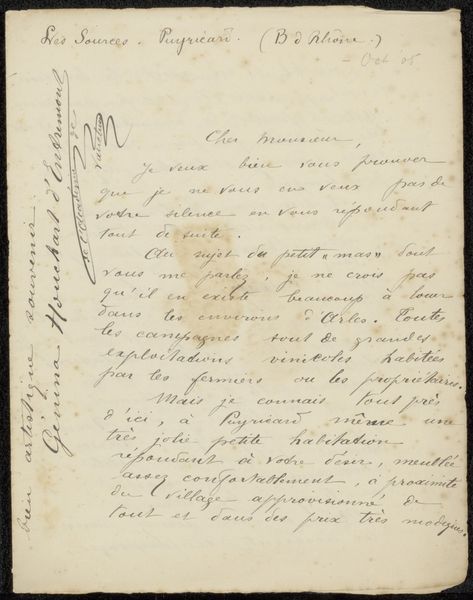 Les Sources. Puyricard. (B d Rhône.)
- Oct 05
Cher Monsieur,
Je veux bien vous prouver
que je ne vous en veux pas de
votre silence en vous répondant
tout de suite.
Au sujet du petit "mas" dont
vous me parlez, je ne crois pas
qu'il en existe beaucoup à louer
dans les environs d'Arles. Toutes
les campagnes sont de grandes
exploitations vinicoles habitées
par les fermiers ou les propriétaires.
Mais je connais tout près
d'ici, à Puyricard même une
très jolie petite habitation
répondant à votre désir, meublée
assez confortablement, à proximité
du village approvisionné de
tout et dans des prix très modiques.
bien artistique souvenir
Gévina Houchart d'Entremont
de l'Académie de
Vaucluse